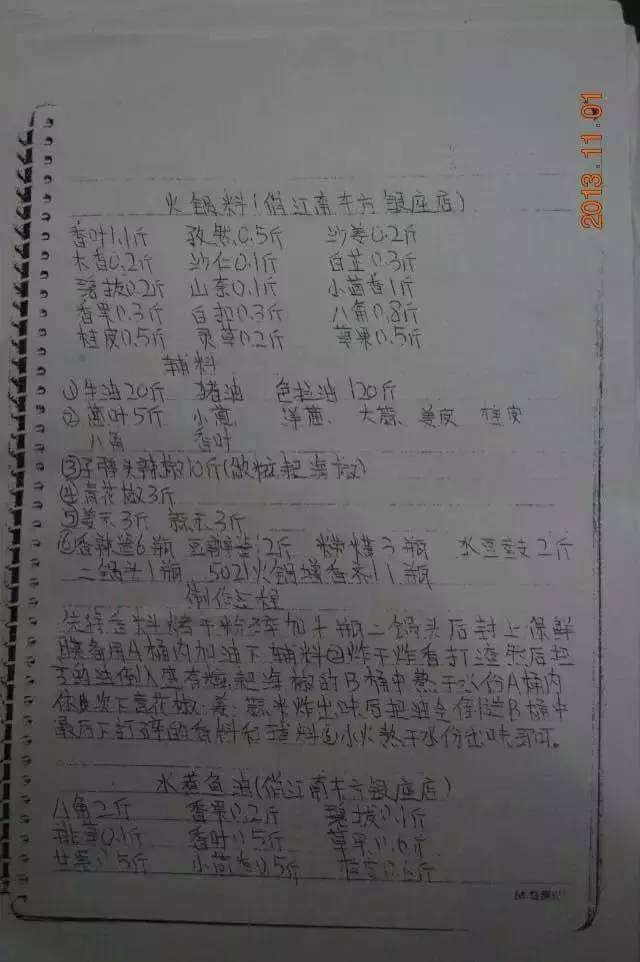 2013.11.01
火锅料(俏江南东方银座店)
香叶1.1斤 孜然0.5斤 沙姜0.2斤
木香0.2斤 沙仁0.1斤 白芷0.3斤
荜拔0.2斤 山奈0.1斤 小茴香1斤
香果0.3斤 白扣0.3斤 八角0.8斤
桂皮0.5斤 灵草0.2斤 草果0.5斤
辅料
①牛油20斤 猪油 色拉油120斤
②葱叶5斤 小葱、洋葱、大蒜、姜皮 桂皮
八角 香叶
③子弹头辣椒10斤(做糍粑海椒)
④青花椒3斤
⑤姜米3斤 蒜米3斤
⑥香辣酱6瓶 豆瓣酱12斤 3瓶 水豆豉2斤
二锅头1瓶 5021火锅增香 1瓶
制作过程
先将香料烤干粉碎加半瓶二锅头后封上保鲜
膜备用A桶内加油下辅料②炸干炸香打渣然后把
油倒入空有糍粑海椒的B桶中熬干水份A桶内
依次下青花椒 姜 蒜米炸出味后把油全倒进B桶中
最后下打碎的香料和辅料⑥小火熬干水份出味即可。
水煮鱼油(俏江南东方银座店)
八角2斤 香果0.2斤 荜拔0.1斤
排草0.1斤 香叶0.5斤 草果0.6斤
甘草0.5斤 小茴香0.5斤